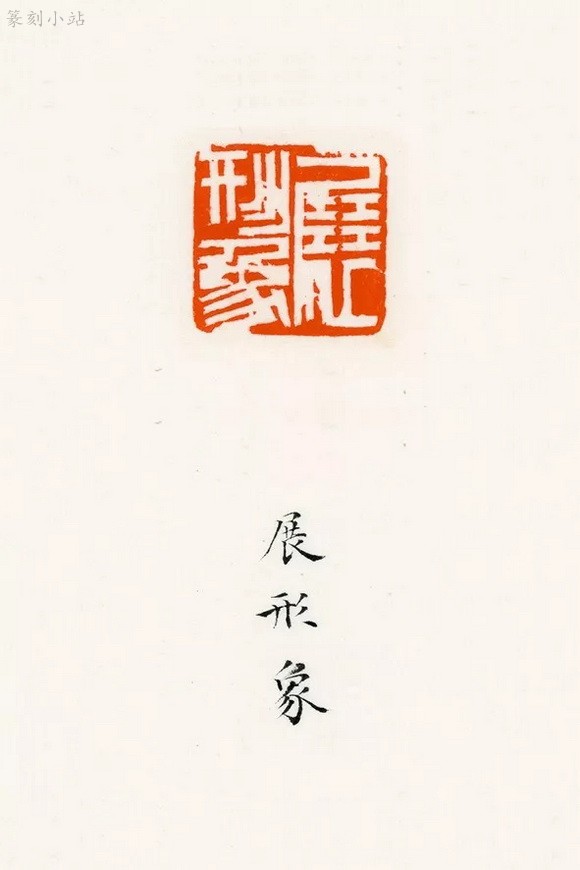 篆刻小站
展形象
展
形
象